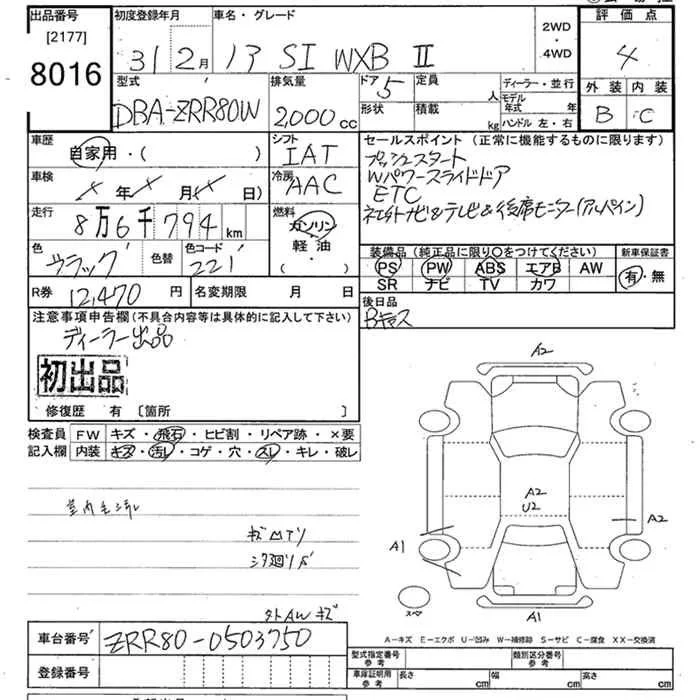 出品番号
[2177]
8016
初度登録年月
31 2月
車名・グレード
ノア SI WXB II
2WD
・
4WD
評価点
4
外装 内装
B C
型式
DBA-ZRR80W
排気量
2,000 cc
ドア 5
形状
定員 人
積載 kg
ディーラー・並行
モデル年式 年
ハンドル 左・右
車歴
自家用・( )
シフト
IAT
車検
× 年 × 月 × 日
冷房
AAC
走行
8万6千794 km
燃料
ガソリン
軽油・
( )
色
ブラック
色替
色コード
221
R券 12,470 円
名変期限 月 日
セールスポイント(正常に機能するものに限ります)
プッシュスタート
Wパワースライドドア
ETC
社外ナビ&テレビ&後席モニター(アルパイン)
装備品(純正品に限り○をつけてください)
PS PW ABS エアB AW
SR ナビ TV カワ
新車保証書
有・無
後日品
注意事項申告欄(不具合内容等は具体的に記入して下さい)
ディーラー出品
初出品
修復歴 有 [箇所 ]
検査員
記入欄
FW キズ・飛石・ヒビ割・リペア跡・×要
内装 キズ・汚レ・コゲ・穴・スレ・キレ・破レ
A2
A2
U2
A2
A1
スペア
A1
外AWキズ
車台番号 ZRR80-0503750
登録番号
A-キズ E-エクボ U-凹み W-補修跡 S-サビ C-腐食 XX-交換済
型式指定番号
参考
類別区分番号
参考
車庫証明用
参考
長さ cm 幅 cm 高さ cm